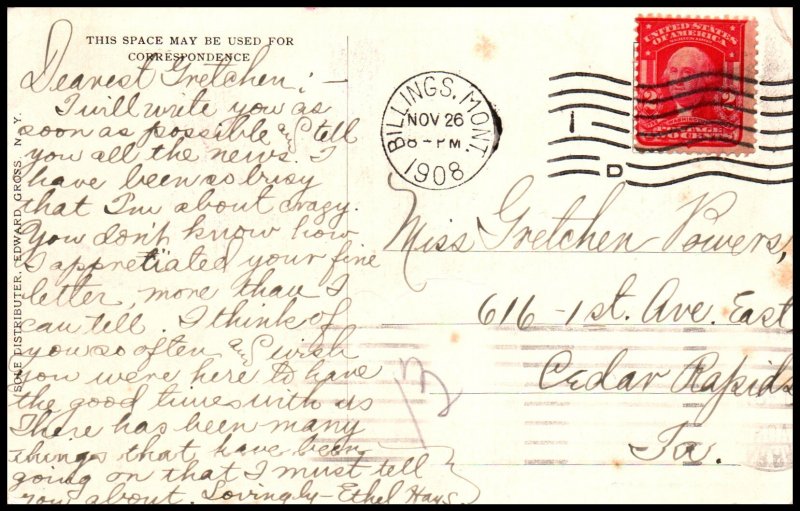 THIS SPACE MAY BE USED FOR
CORRESPONDENCE
Dearest Gretchen; -
I will write you as
soon as possible and tell
you all the news. I
have been so busy
that I'm about crazy.
You don't know how
I appretiated your fine
letter, more than I
can tell. I think of
you so often and wish
you were here to have
the good times with us
There has been many
things that have been
going on that I must tell
you about. Lovingly - Ethel Hays.
SOLE DISTRIBUTER, EDWARD GROSS, N. Y.
BILLINGS, MONT.
NOV 26
8 - PM
1908
1
D
UNITED STATES
OF AMERICA
2
Miss Gretchen Powers,
616 - 1st. Ave. East
Cedar Rapids
Ia.
12